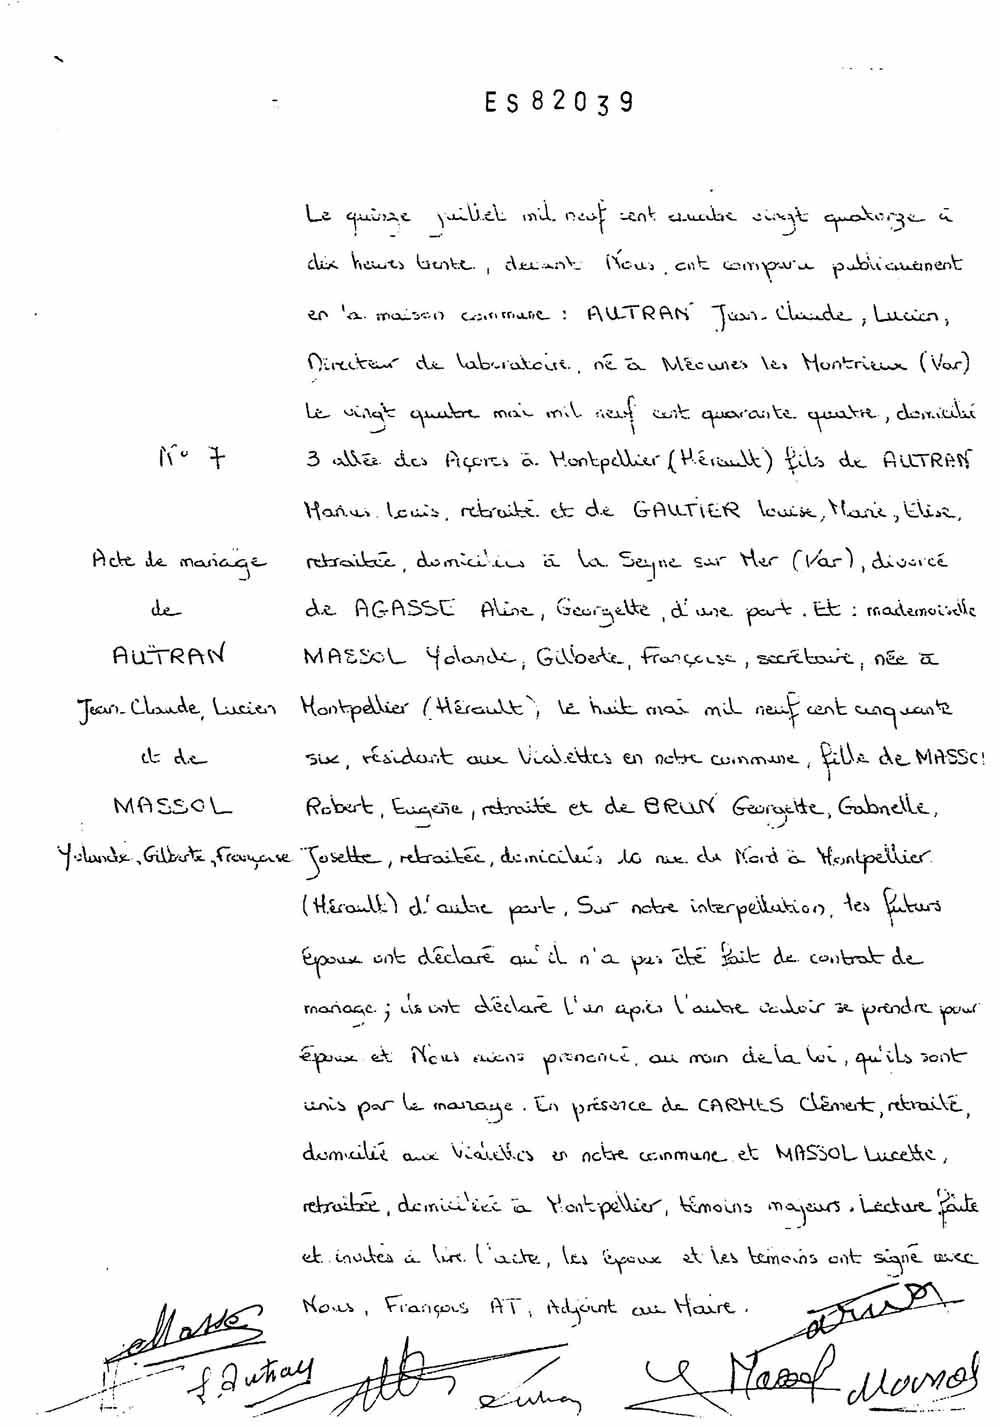 ES82039
Le quinze juillet mil neuf cent quatre vingt quatorze à
dix heures trente, devant Nous, ont comparu publiquement
en la maison commune : AUTRAN Jean-Claude, Lucien,
Directeur de laboratoire, né à Méounes les Montrieux (Var)
le vingt quatre mai mil neuf cent quarante quatre, domicilié
N° 7
3 allée des Açores à Montpellier (Hérault) fils de AUTRAN
Marius Louis, retraité et de GAUTIER Louise, Marie, Elise,
Acte de mariage
retraitée, domiciliés à la Seyne sur Mer (Var), divorcé
de
de AGASSE Aline, Georgette, d'une part. Et : mademoiselle
AUTRAN
MASSOL Yolande, Gilberte, Françoise, secrétaire, née à
Jean-Claude, Lucien
Montpellier (Hérault), le huit mai mil neuf cent cinquante
et de
six, résidant aux Vialettes en notre commune, fille de MASSOL
MASSOL
Robert, Eugène, retraité et de BRUN Georgette, Gabrielle,
Yolande, Gilberte, Françoise
Josette, retraitée, domiciliés 10 rue du Nord à Montpellier
(Hérault) d'autre part. Sur notre interpellation, les futurs
époux ont déclaré qu'il n'a pas été fait de contrat de
mariage ; ils ont déclaré l'un après l'autre vouloir se prendre pour
époux et Nous avons prononcé, au nom de la loi, qu'ils sont
unis par le mariage. En présence de CARMES Clément, retraité,
domicilié aux Vialettes en notre commune et MASSOL Lucette,
retraitée, domiciliée à Montpellier, témoins majeurs. Lecture faite
et invités à lire l'acte, les époux et les témoins ont signé avec
Nous, François AT, Adjoint au Maire.
Massol